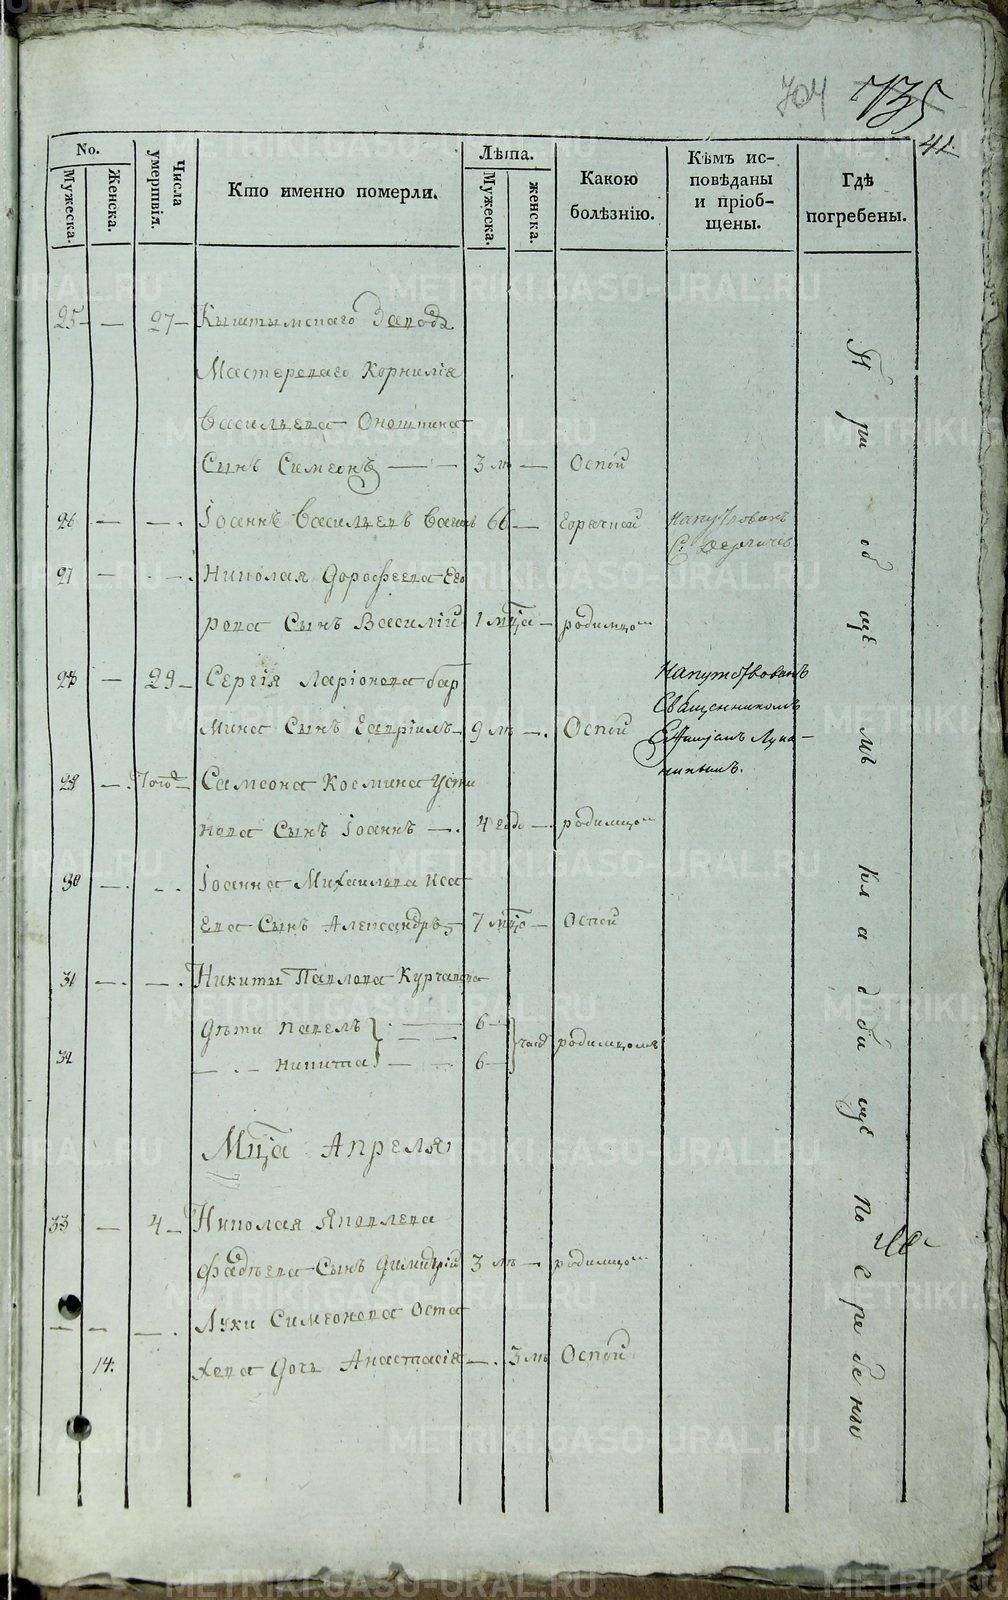 704 735
41.
No.
Мужеска.
Женска.
Числа умершвія.
Кто именно померли.
Лѣта.
Мужеска.
женска.
Какою болѣзнію.
Кѣмъ исповѣданы и пріобщены.
Гдѣ погребены.
25 — — 27 — Кыштымскаго Завода
Мастероваго Корнилія
Васильева Оношкина
Сынъ Симеонъ — — 3 лѣ — Оспой
26 — — . Іоаннъ Васильевъ 66 — Горячкой
Напутвованъ
С.
27 — — . Николая Дорофеева Его
рова Сынъ Василій 1 мца — родимцо
28 — 29 — Сергія Ларіонова бар
мина Сынъ Гавріилъ — 9 лѣ — . Оспой
Напутствованъ
Священникомъ
29 — . Самсона Космина Усти
нова Сынъ Іоаннъ — . 4 годо — . родимцо
30 — . - . Іоанна Михаилова Иса
ева Сынъ Александръ 7 мцо — Оспой
31 — . — . Никиты Павлова Курчавова
Дѣти Павелъ } . — 6 —
часо родимцомъ
32 — . - Никита — — 6 —
Мца Апреля
33 — 4 — Николая Яковлева
Фадѣева Сынъ Димитрій 3 лѣ — родимцо
— — — . Луки Симеонова Оста
14. хова Дочь Анастасія — . 3 лѣ Оспой
При общемъ кладбищѣ по средѣнно
METRIKI.GASO-URAL.RU